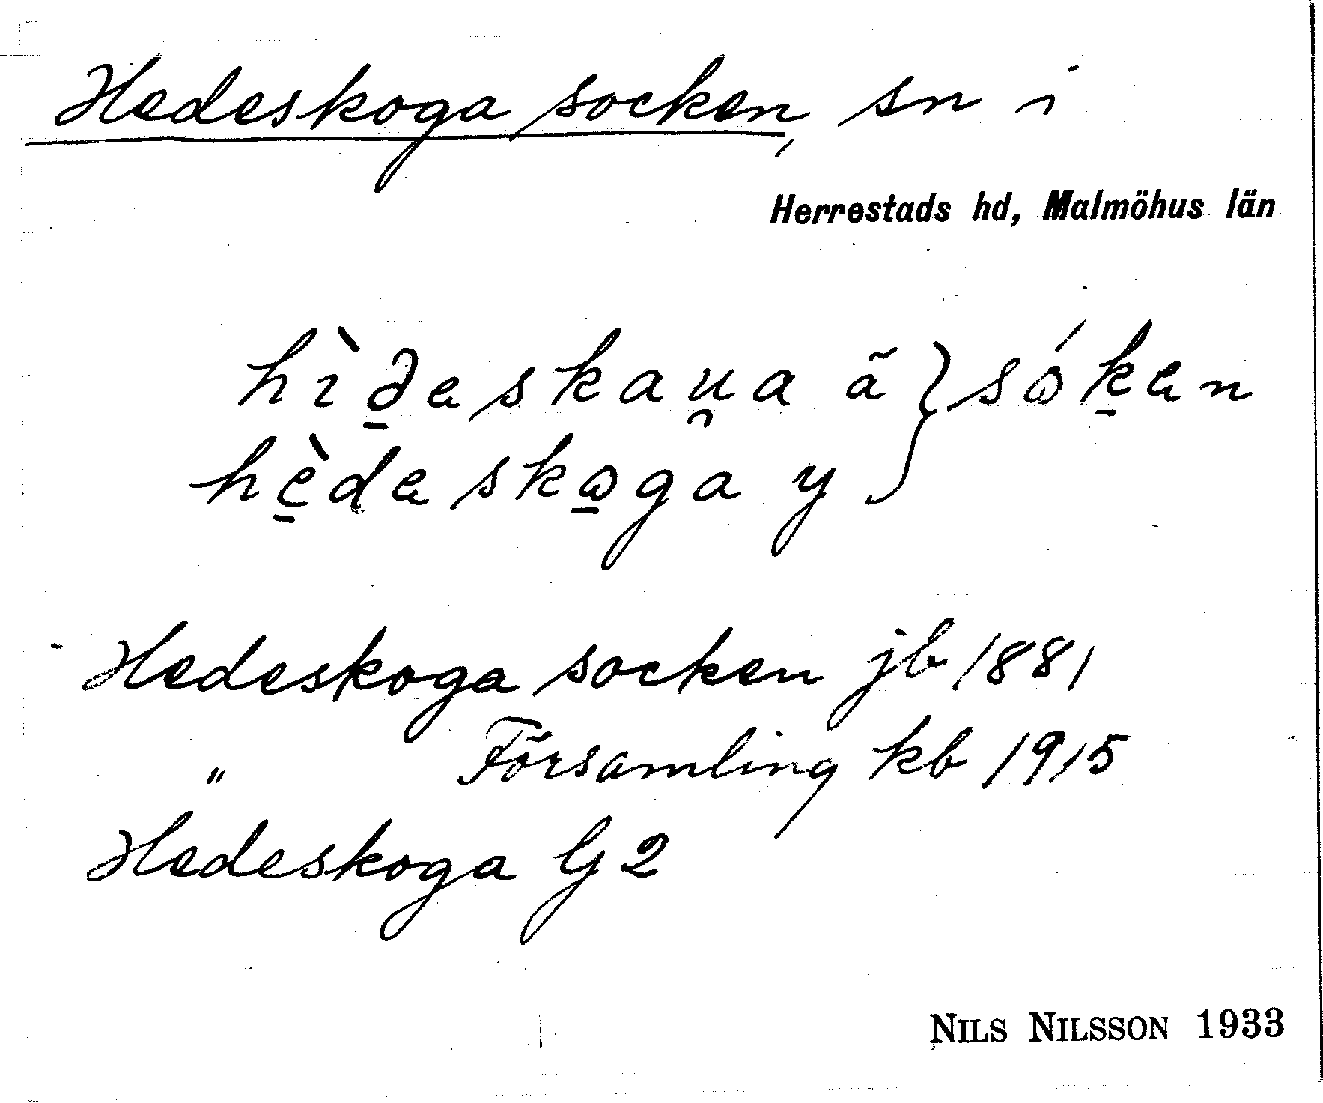 Hedeskoga socken, sn i
Herrestads hd, Malmöhus län
hìðeskau̯a ä } sóken
hèdeskoga y
Hedeskoga socken jb 1881
" Församling kb 1915
Hedeskoga G 2
NILS NILSSON 1933